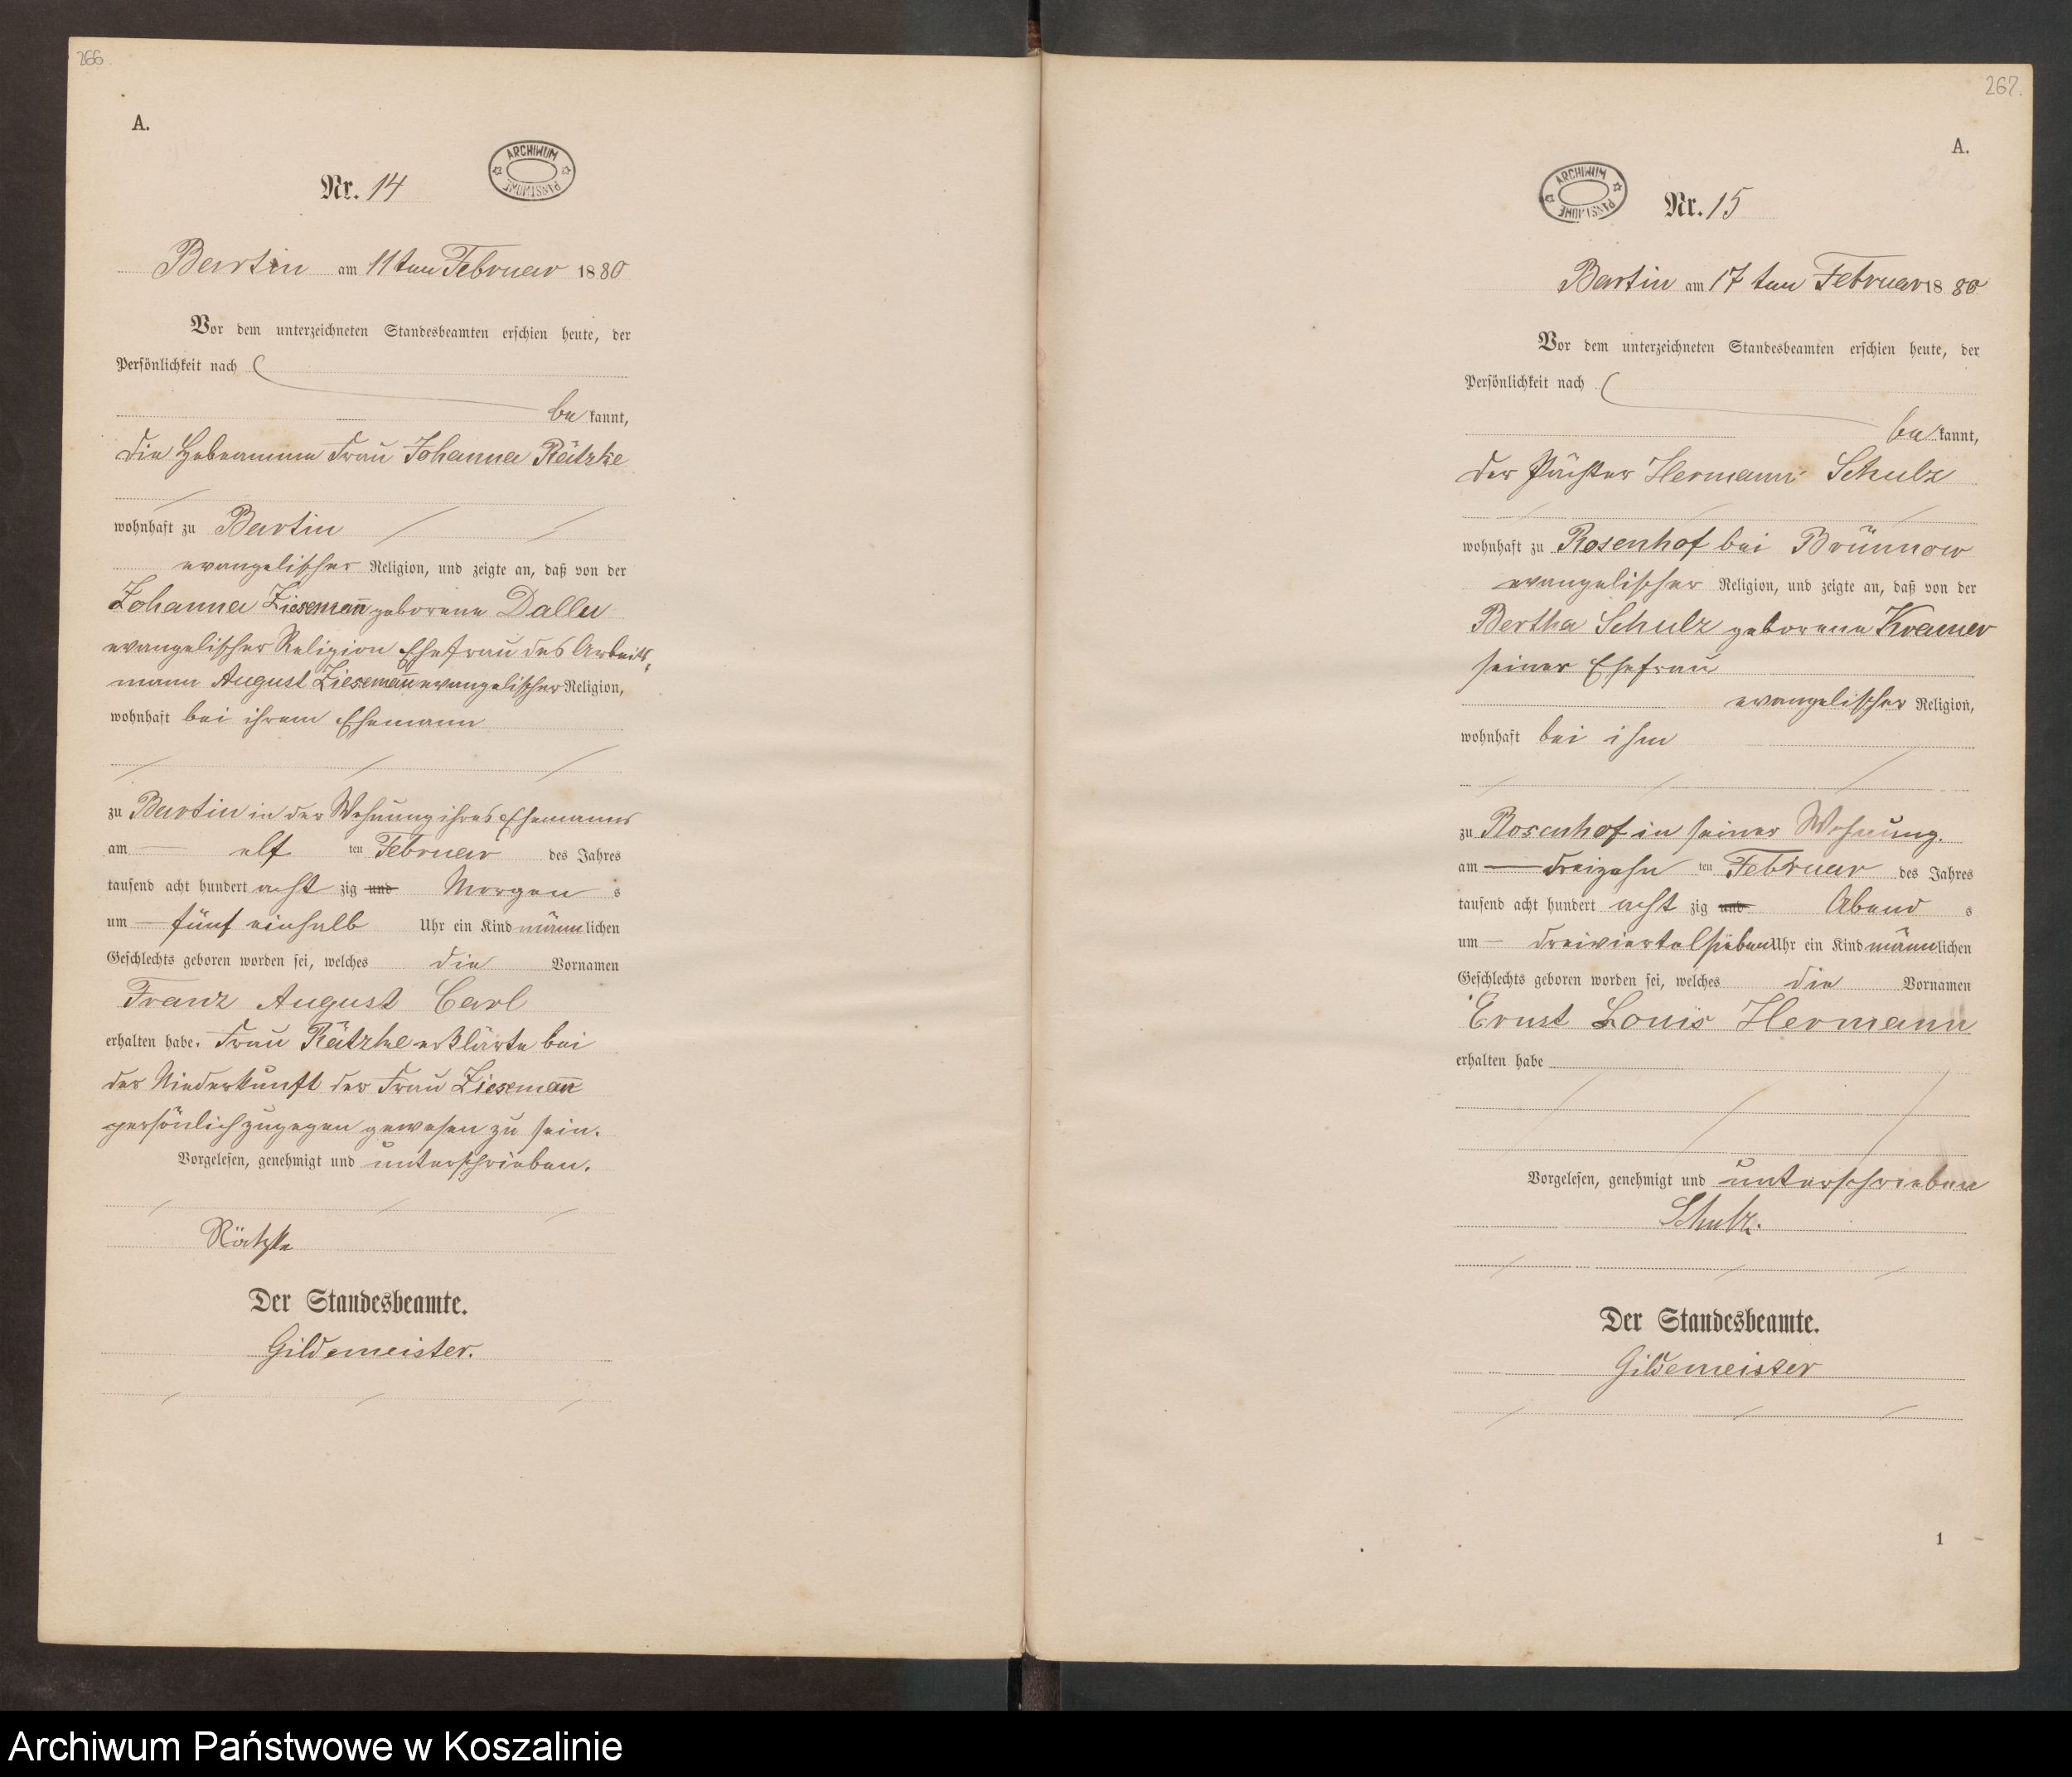 266.
A.
ARCHIWUM PAŃSTWOWE
Nr. 14
Bartin am 11ten Februar 1880
Vor dem unterzeichneten Standesbeamten erschien heute, der
Persönlichkeit nach
be kannt,
die Hebeamme Frau Johanna Rätzke
wohnhaft zu Bartin
evangelischer Religion, und zeigte an, daß von der
Johanna Ziesemañ geborene
evangelischer Religion Ehefrau des Arbeits-
mann August Ziesemañ evangelischer Religion,
wohnhaft bei ihrem Ehemann
zu Bartin in der Wohnung ihres Ehemannes
am elf ten Februar des Jahres
tausend acht hundert acht zig und Morgen s
um fünf einhalb Uhr ein Kind männlichen
Geschlechts geboren worden sei, welches die Vornamen
Franz August Carl
erhalten habe. Frau Rätzke erklärte bei
der Niederkunft der Frau Ziesemañ
persönlich zugegen gewesen zu sein.
Vorgelesen, genehmigt und unterschrieben.
Rätzke
Der Standesbeamte.
Gildemeister.
267.
A.
ARCHIWUM PAŃSTWOWE
Nr. 15
Bartin am 17 ten Februar 1880
Vor dem unterzeichneten Standesbeamten erschien heute, der
Persönlichkeit nach
be kannt,
der Pächter Hermann Schulz
wohnhaft zu Rosenhof bei Brünnow
evangelischer Religion, und zeigte an, daß von der
Bertha Schulz geborene Kramer
seiner Ehefrau
evangelischer Religion,
wohnhaft bei ihm
zu Rosenhof in seiner Wohnung.
am dreizehn ten Februar des Jahres
tausend acht hundert acht zig und Abend s
um dreiviertel sieben Uhr ein Kind männlichen
Geschlechts geboren worden sei, welches die Vornamen
Ernst Louis Hermann
erhalten habe
Vorgelesen, genehmigt und unterschrieben
Schulz.
Der Standesbeamte.
Gildemeister
1
Archiwum Państwowe w Koszalinie